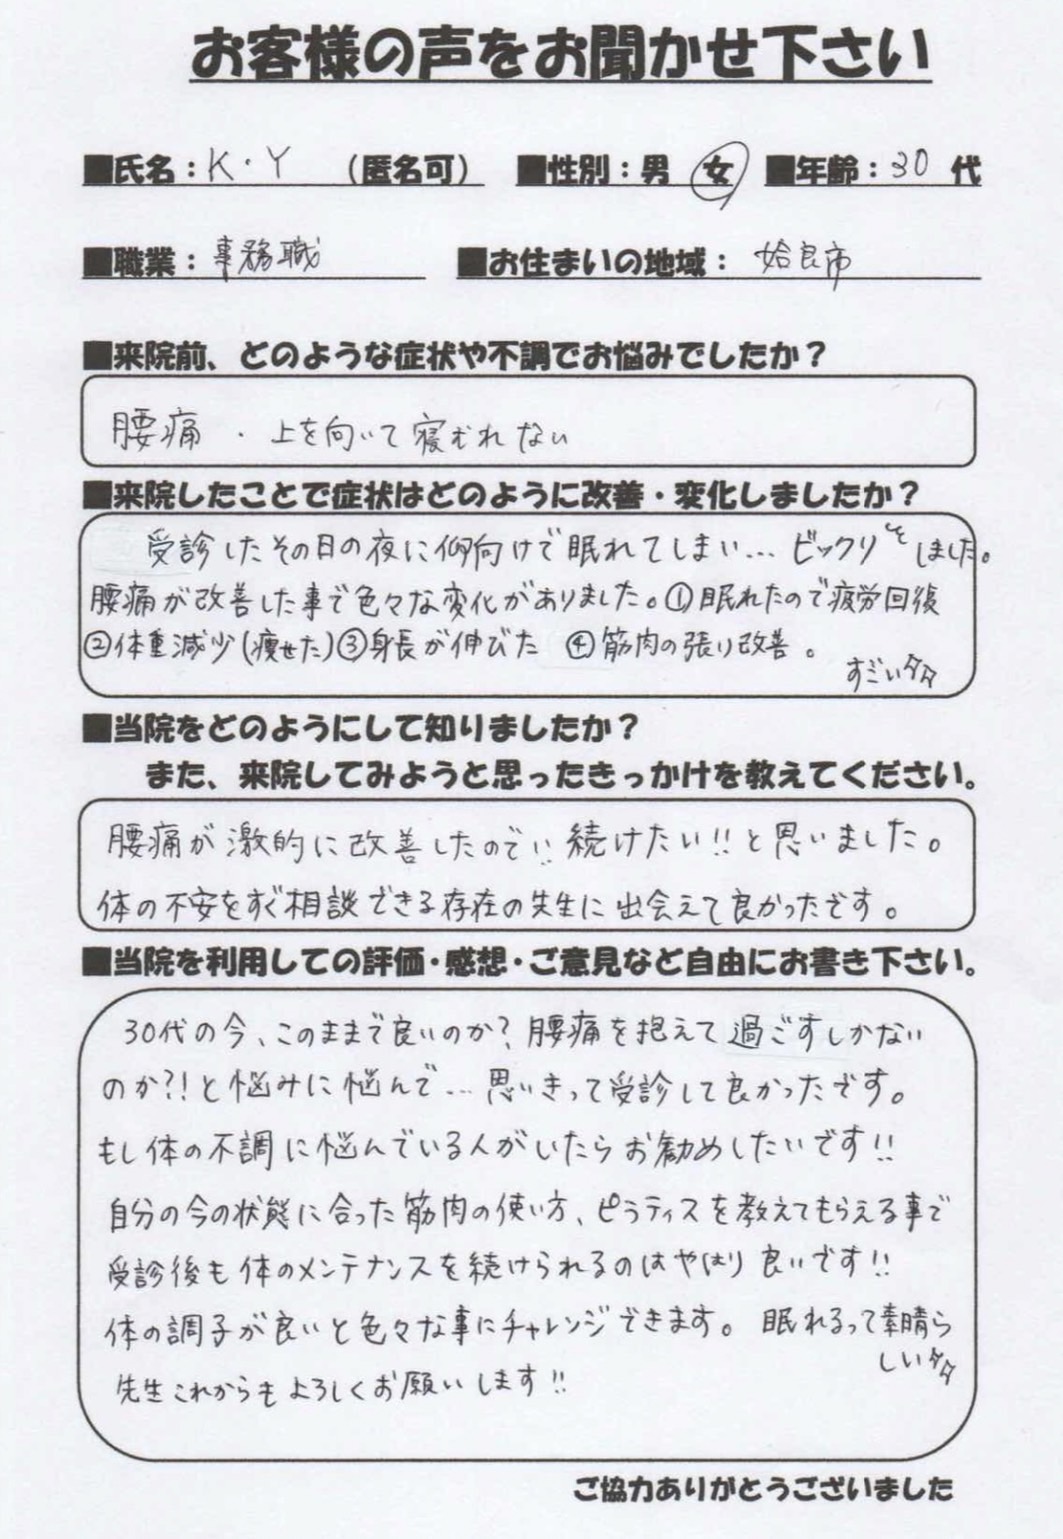 お客様の声をお聞かせ下さい
■氏名：K・Y （匿名可） ■性別：男 女 ■年齢：30 代
■職業：事務職 ■お住まいの地域： 姶良市
■来院前、どのような症状や不調でお悩みでしたか？
腰痛 ・ 上を向いて寝むれない
■来院したことで症状はどのように改善・変化しましたか？
受診したその日の夜に仰向けで眠れてしまい… ビックリしました。
腰痛が改善した事で色々な変化がありました。①眠れたので疲労回復
②体重減少(痩せた)③身長が伸びた ④筋肉の張り改善。
すごい
■当院をどのようにして知りましたか？
また、来院してみようと思ったきっかけを教えてください。
腰痛が激的に改善したので!! 続けたい!!と思いました。
体の不安をすぐ相談できる存在の先生に出会えて良かったです。
■当院を利用しての評価・感想・ご意見など自由にお書き下さい。
30代の今、このままで良いのか？腰痛を抱えて過ごすしかない
のか?!と悩みに悩んで… 思いきって受診して良かったです。
もし体の不調に悩んでいる人がいたらお勧めしたいです!!
自分の今の状態に合った筋肉の使い方、ピラティスを教えてもらえる事で
受診後も体のメンテナンスを続けられるのはやはり良いです!!
体の調子が良いと色々な事にチャレンジできます。 眠れるって素晴ら
しい
先生これからもよろしくお願いします!!
ご協力ありがとうございました